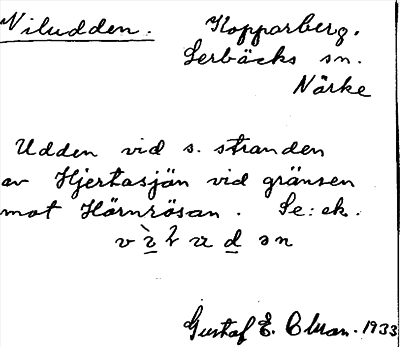 Viludden. Kopparberg.
Lerbäcks sn.
Närke
Udden vid s. stranden
av Hjertasjön vid gränsen
mot Hörnrösan. Se: ek.
Gustaf E. Olsson. 1933